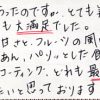 ったのですが、とても
も大満足でした。
甘さと、フルーツの風
あん、パリッとした食
コーティング、どれも最
たいと思っております